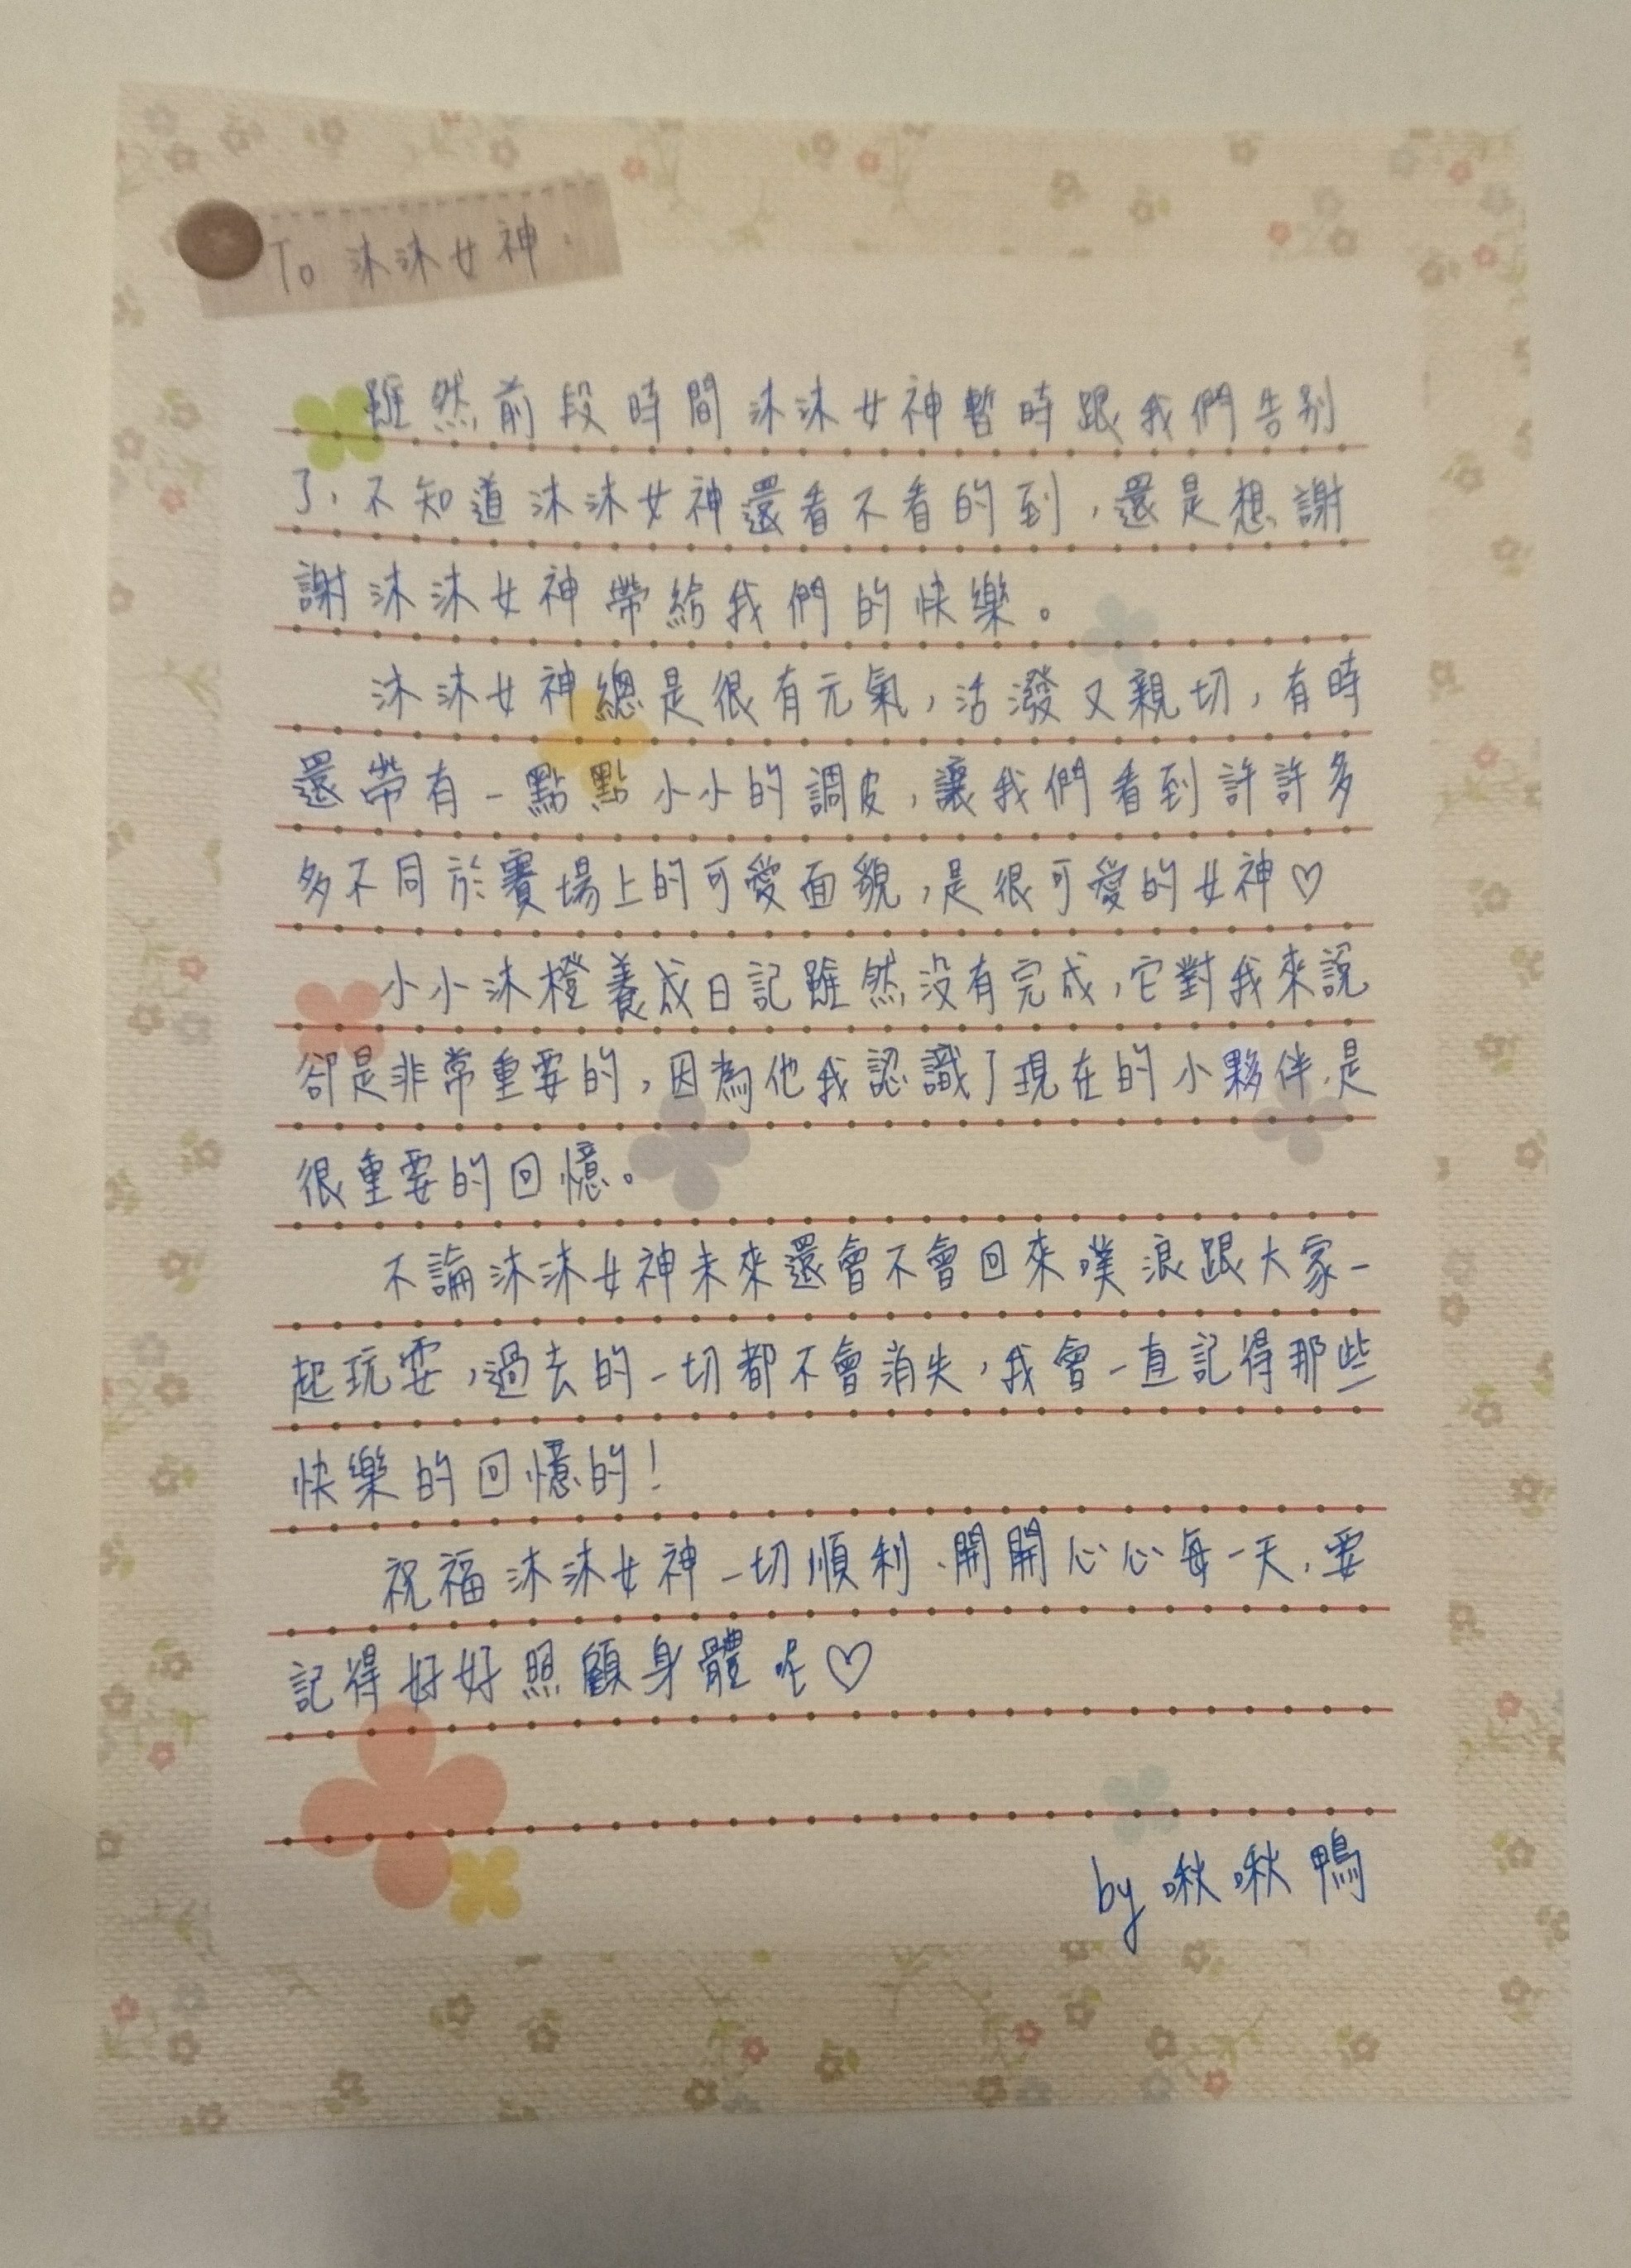 To 沐沐女神.
雖然前段時間沐沐女神暫時跟我們告別
了,不知道沐沐女神還看不看的到,還是想謝
謝沐沐女神帶給我們的快樂。
沐沐女神總是很有元氣,活潑又親切,有時
還帶有一點點小小的調皮,讓我們看到許許多
多不同於賽場上的可愛面貌,是很可愛的女神♡
小小沐橙養成日記雖然沒有完成,它對我來說
卻是非常重要的,因為他我認識了現在的小夥伴,是
很重要的回憶。
不論沐沐女神未來還會不會回來噗浪跟大家一
起玩耍,過去的一切都不會消失,我會一直記得那些
快樂的回憶的!
祝福沐沐女神一切順利、開開心心每一天,要
記得好好照顧身體呢♡
by 啾啾鴨